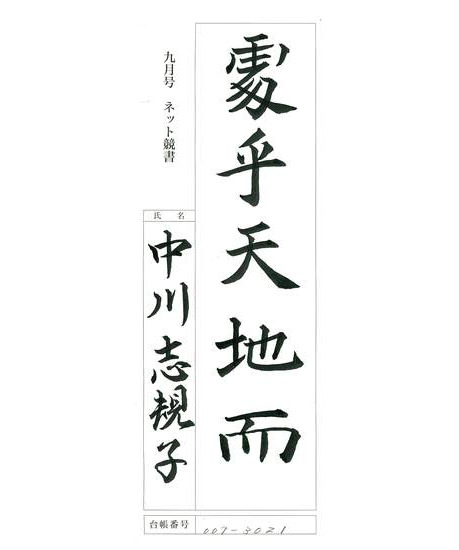 處乎天地而
九月号 ネット競書
氏名
中川志規子
台帳番号 007-3021